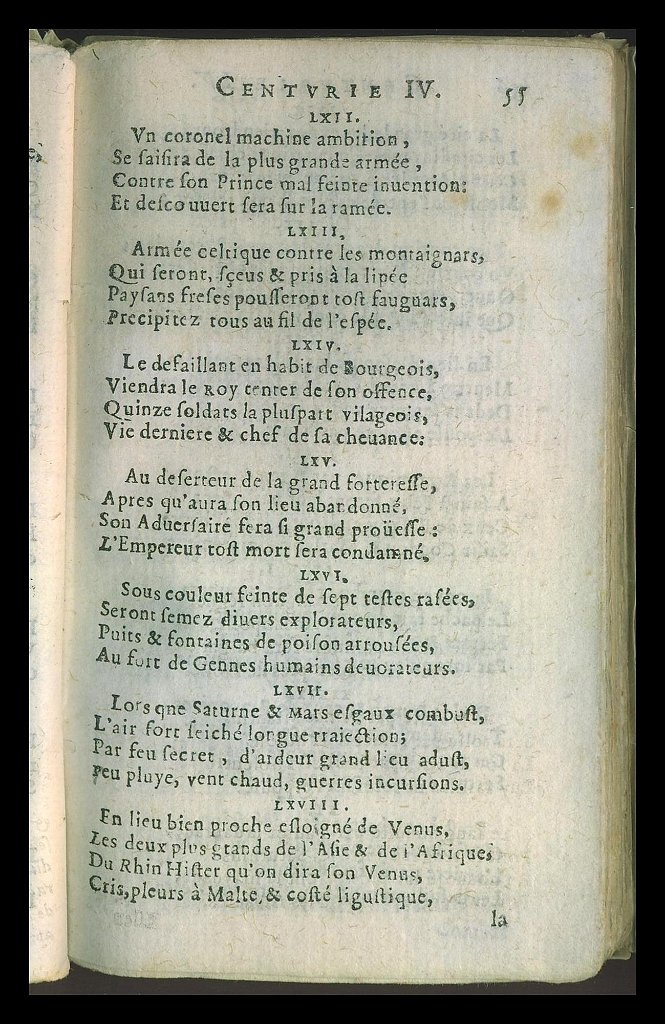 CENTVRIE IV. 55
LXII.
Vn coronel machine ambition,
Se saisira de la plus grande armée,
Contre son Prince mal feinte inuention:
Et descouuert sera sur la ramée.
LXIII.
Armée celtique contre les montaignars,
Qui seront, sçeus & pris à la lipée
Paysans freses pousseront tost fauguars,
Precipitez tous au fil de l'espée.
LXIV.
Le defaillant en habit de Bourgeois,
Viendra le Roy tenter de son offence,
Quinze soldats la pluspart vilageois,
Vie derniere & chef de sa cheuance:
LXV.
Au deserteur de la grand forteresse,
Apres qu'aura son lieu abandonné,
Son Aduersaire fera si grand proüesse:
L'Empereur tost mort sera condamné,
LXVI.
Sous couleur feinte de sept testes rasées,
Seront semez diuers explorateurs,
Puits & fontaines de poison arrousées,
Au fort de Gennes humains deuorateurs.
LXVII.
Lors qne Saturne & Mars esgaux combust,
L'air fort seiché longue traiection;
Par feu secret, d'ardeur grand lieu adust,
Peu pluye, vent chaud, guerres incursions.
LXVIII.
En lieu bien proche esloigné de Venus,
Les deux plus grands de l'Asie & de l'Afrique,
Du Rhin Hister qu'on dira son Venus,
Cris, pleurs à Malte, & costé ligustique,
la